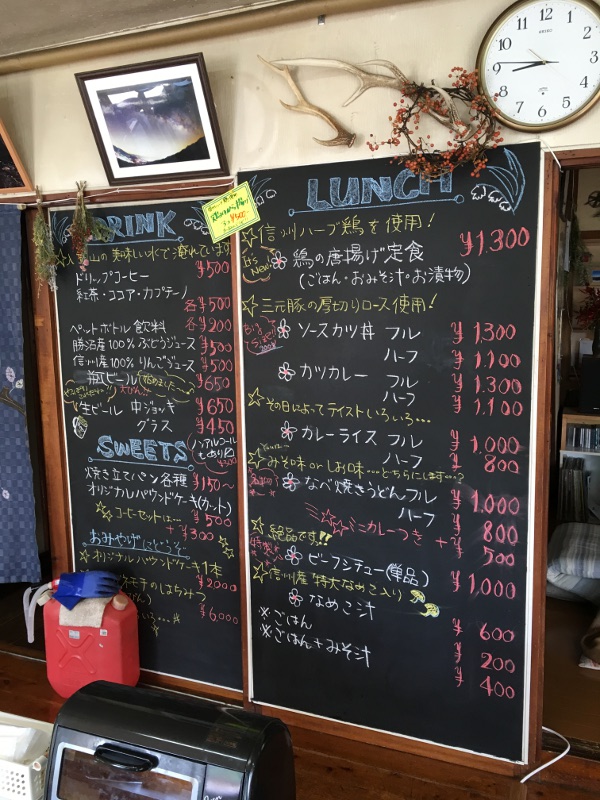 DRINK
¥500
山の美味しい水で淹れています
ドリップコーヒー ¥500
紅茶・ココア・カプチーノ
各¥500
ペットボトル飲料 各¥200
勝沼産100%ぶどうジュース ¥500
信州産100%りんごジュース ¥500
瓶ビール ¥650
生ビール 中ジョッキ ¥650
グラス ¥450
ノンアルコール
もあり
SWEETS
焼き立てパン各種 ¥150～
オリジナルパウンドケーキ(カット) ¥500
コーヒーセットは… +¥300
おみやげ
オリジナルパウンドケーキ1本 ¥2000
はちみつ
¥6,000
LUNCH
信州ハーブ鶏を使用!
It's New
鶏の唐揚げ定食 ¥1,300
(ごはん・おみそ汁・お漬物)
三元豚の厚切りロース使用!
ソースカツ丼 フル ¥1,300
ハーフ ¥1,100
カツカレー フル ¥1,300
ハーフ ¥1,100
その日によってテイストいろいろ…
カレーライス フル ¥1,000
ハーフ ¥800
みそ味orしお味…どちらにします…?
なべ焼きうどん フル ¥1,000
ハーフ ¥800
ミニカレーつき + ¥500
絶品です!!
ビーフシチュー(単品) ¥1,000
信州産 特大なめこ入り
なめこ汁 ¥600
※ごはん ¥200
※ごはん+みそ汁 ¥400
12
1
2
3
4
5
6
7
8
9
10
11
SEIKO